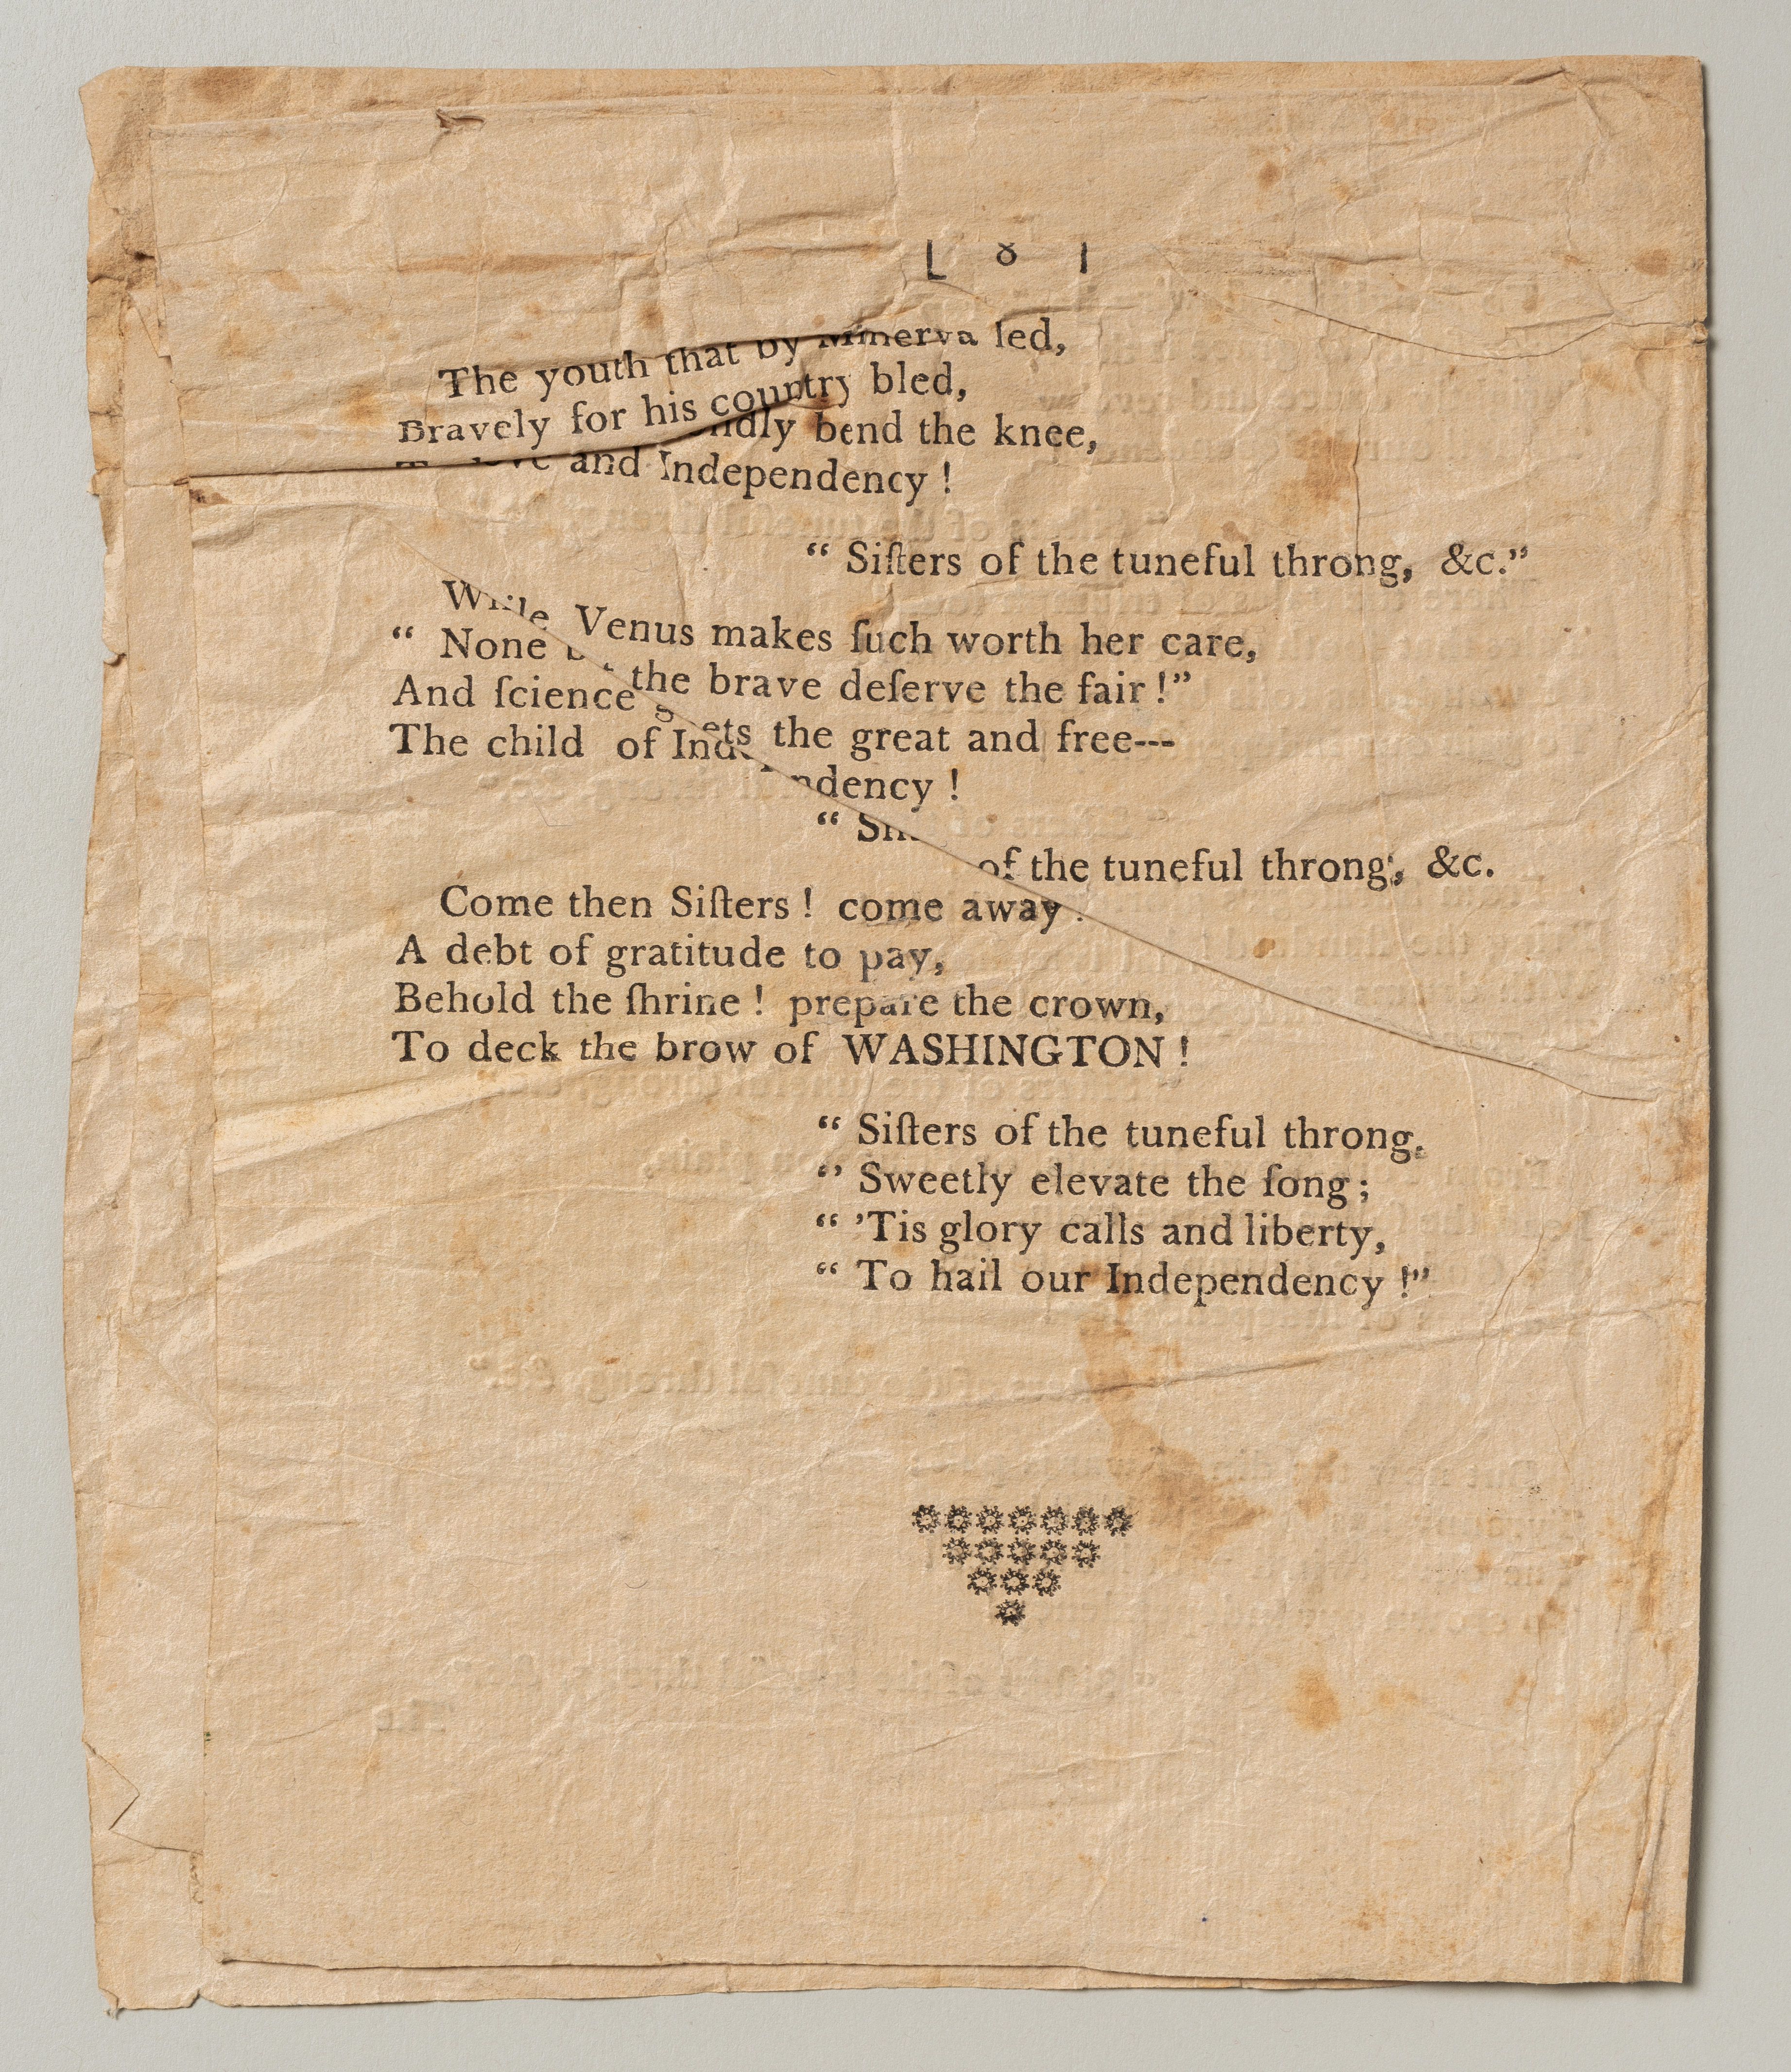 [ 8 ]
The youth that by Minerva led,
Bravely for his country bled,
bend the knee,
and Independency !
“ Siſters of the tuneful throng, &c.”
While Venus makes ſuch worth her care,
“ None but the brave deſerve the fair !”
And ſcience greets the great and free---
The child of Independency !
“ Siſters of the tuneful throng, &c.
Come then Siſters ! come away !
A debt of gratitude to pay,
Behold the ſhrine ! prepare the crown,
To deck the brow of WASHINGTON !
“ Siſters of the tuneful throng,
“ Sweetly elevate the ſong ;
“ ’Tis glory calls and liberty,
“ To hail our Independency !”